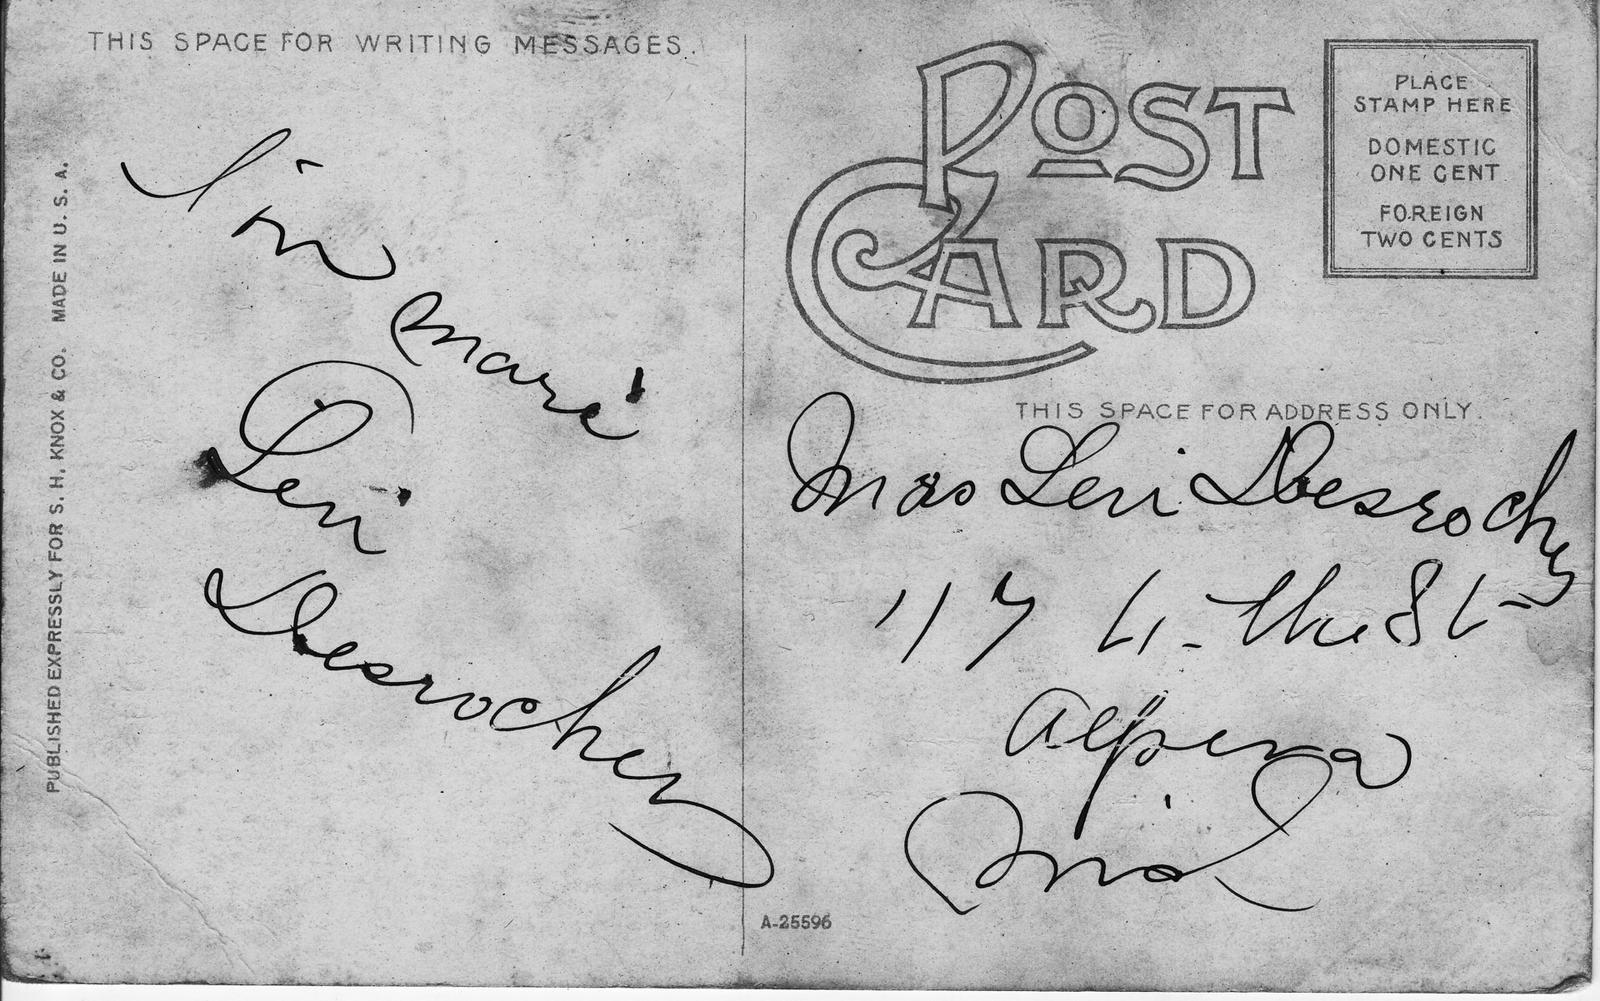 THIS SPACE FOR WRITING MESSAGES.
Ton
mari
Levi
Desrocher
PUBLISHED EXPRESSLY FOR S. H. KNOX & CO. MADE IN U. S. A.
POST
CARD
PLACE
STAMP HERE
DOMESTIC
ONE CENT
FOREIGN
TWO CENTS
THIS SPACE FOR ADDRESS ONLY.
Levi Desrocher
117
St
Alpena
A-25596